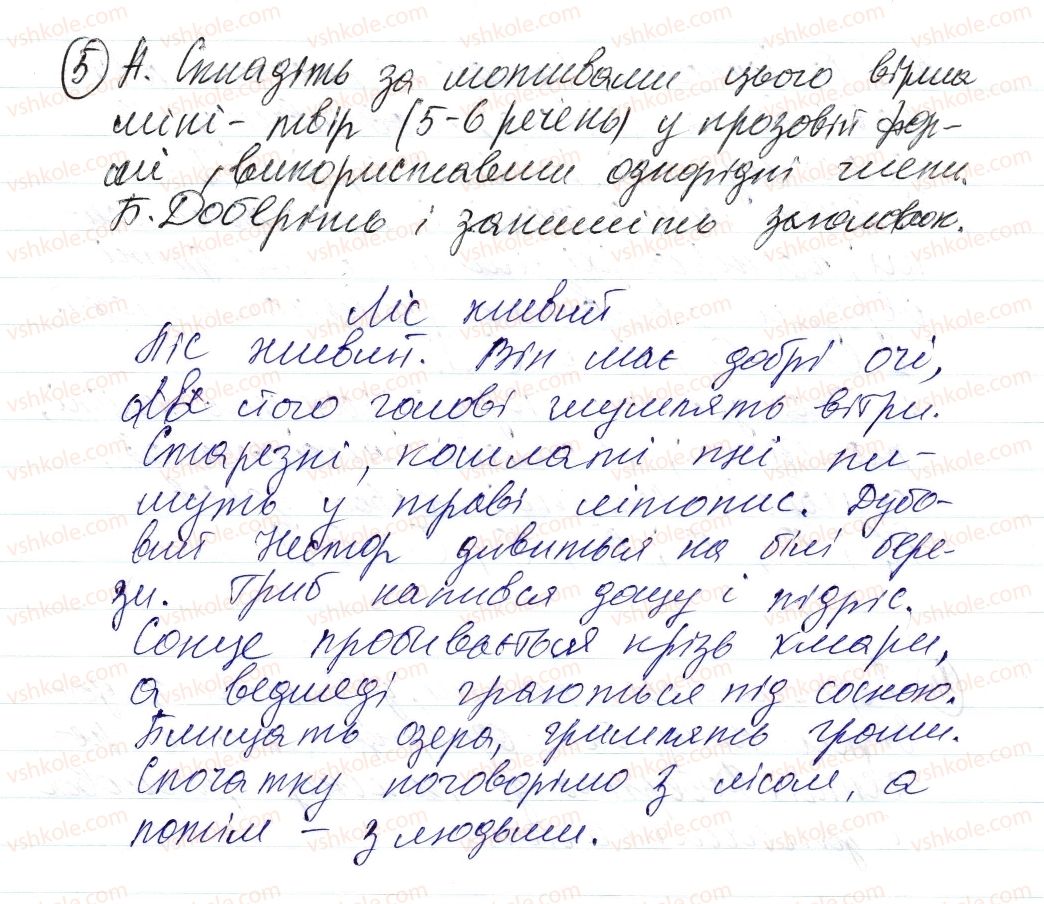 5 А. Складіть за мотивами цього вірша
міні - твір (5-6 речень) у прозовій фор-
мі, використавши однорідні члени.
Б. Доберіть і запишіть заголовок.
Ліс живий
Ліс живий. Він має добрі очі,
а в його голові шумлять вітри.
Старезні, кошлаті пні пи-
шуть у траві літопис. Дубо-
вий Нестор дивиться на білі бере-
зи. Гриб напився дощу і підріс.
Сонце пробивається крізь хмари,
а ведмеді граються під сосною.
Блищать озера, гримлять громи.
Спочатку поговорімо з лісом, а
потім - з людьми.